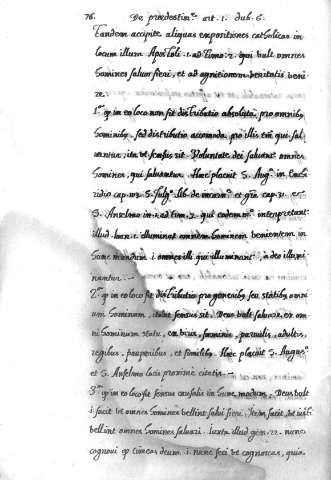 76. De praedestin.e art. 1. dub. 6.
Tandem accipite aliquas expositiones catholicas in
locum illum Apostoli 1. ad Timo. 2. qui vult omnes
homines salvos fieri, et ad agnitionem veritatis veni
re.
1.a q in eo loco non fit distributio absoluta pro omnibus
hominibus, sed distributio accomoda pro illis qui sal
vantur, ita ut sensus sit. Voluntate dei salvantur omnes
homines, qui salvantur. Haec placuit S. Aug.o in Enchi
ridio cap. 103. S. lib. de et cap. et
S. Anselmo in 1. ad Tim. 2. qui eodem interpretant
illud Ioan. 1. illuminat omnem hominem venientem in
hunc mundum i. omnes illi qui illuminant, a deo illumi
nantur.
2.a q in eo loco fit distributio pro generibus seu statibus omni
um hominum, itaut sensus sit. Deus vult salvare, ex om
ni hominum statu, ex viris, foeminis, parvulis, adultis,
regibus, pauperibus, et similibus. Haec placuit S. Augus.o
et S. Anselmo locis proxime citatis.
3.a q in eo loco fit sensus causalis in hunc modum, Deus vult
i. facit ut omnes homines velint salvi fieri, facit ut
velint omnes homines salvari. iuxta illud gen. 22. nunc
cognovi q timeas deum i. nunc feci ut cognoscas, quia